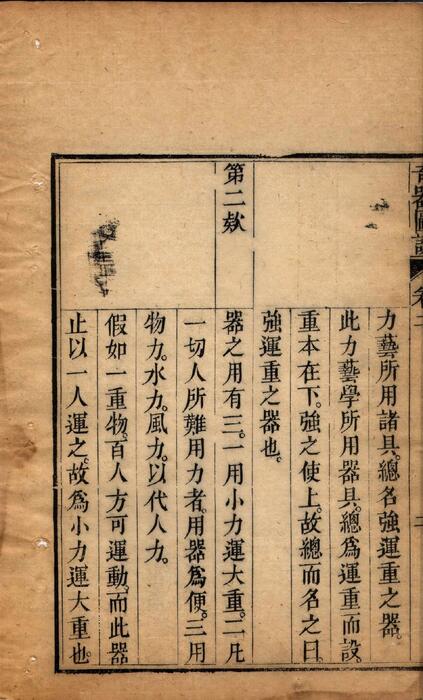 奇器圖說 卷二 二
力藝所用諸具。總名強運重之器。
此力藝學所用器具。總爲運重而設。
重本在下。強之使上。故總而名之曰。
強運重之器也。
第二款
器之用有三。一用小力運大重。二凡
一切人所難用力者。用器爲便。三用
物力。水力。風力。以代人力。
假如一重物。百人方可運動。而此器
止以一人運之。故爲小力運大重也。